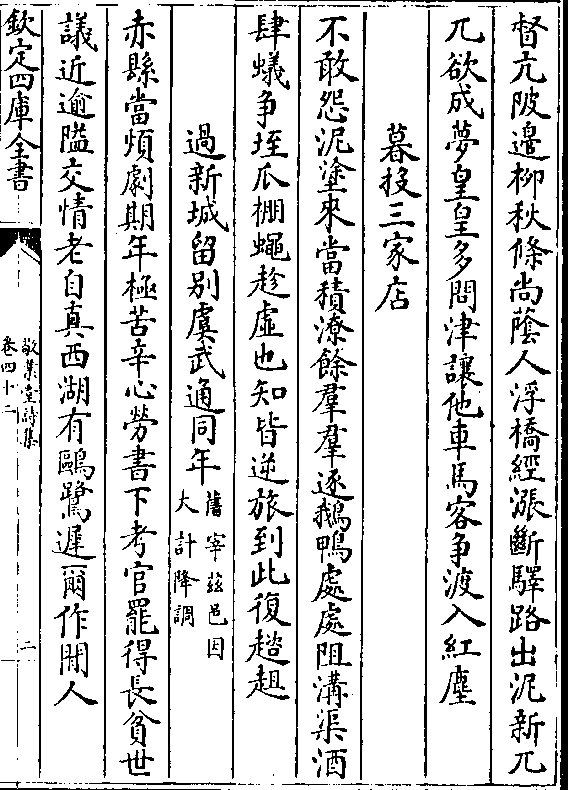 督亢陂邉柳秋條尚蔭人浮橋經漲斷驛路出泥新兀
兀欲成夢皇皇多問津讓他車馬客争渡入紅塵
暮投三家店
不敢怨泥塗來當積潦餘羣羣逐鵝鴨處處阻溝渠酒
肆蟻争垤瓜棚蠅趁虛也知皆逆旅到此復趦趄
過新城留别虞武通同年舊宰兹邑因
大計降調
赤縣當煩劇期年極苦辛心勞書下考官罷得長貧世
議近逾隘交情老自真西湖有鷗鷺遲爾作閒人
欽定四庫全書
敬業堂詩集
卷四十二
二